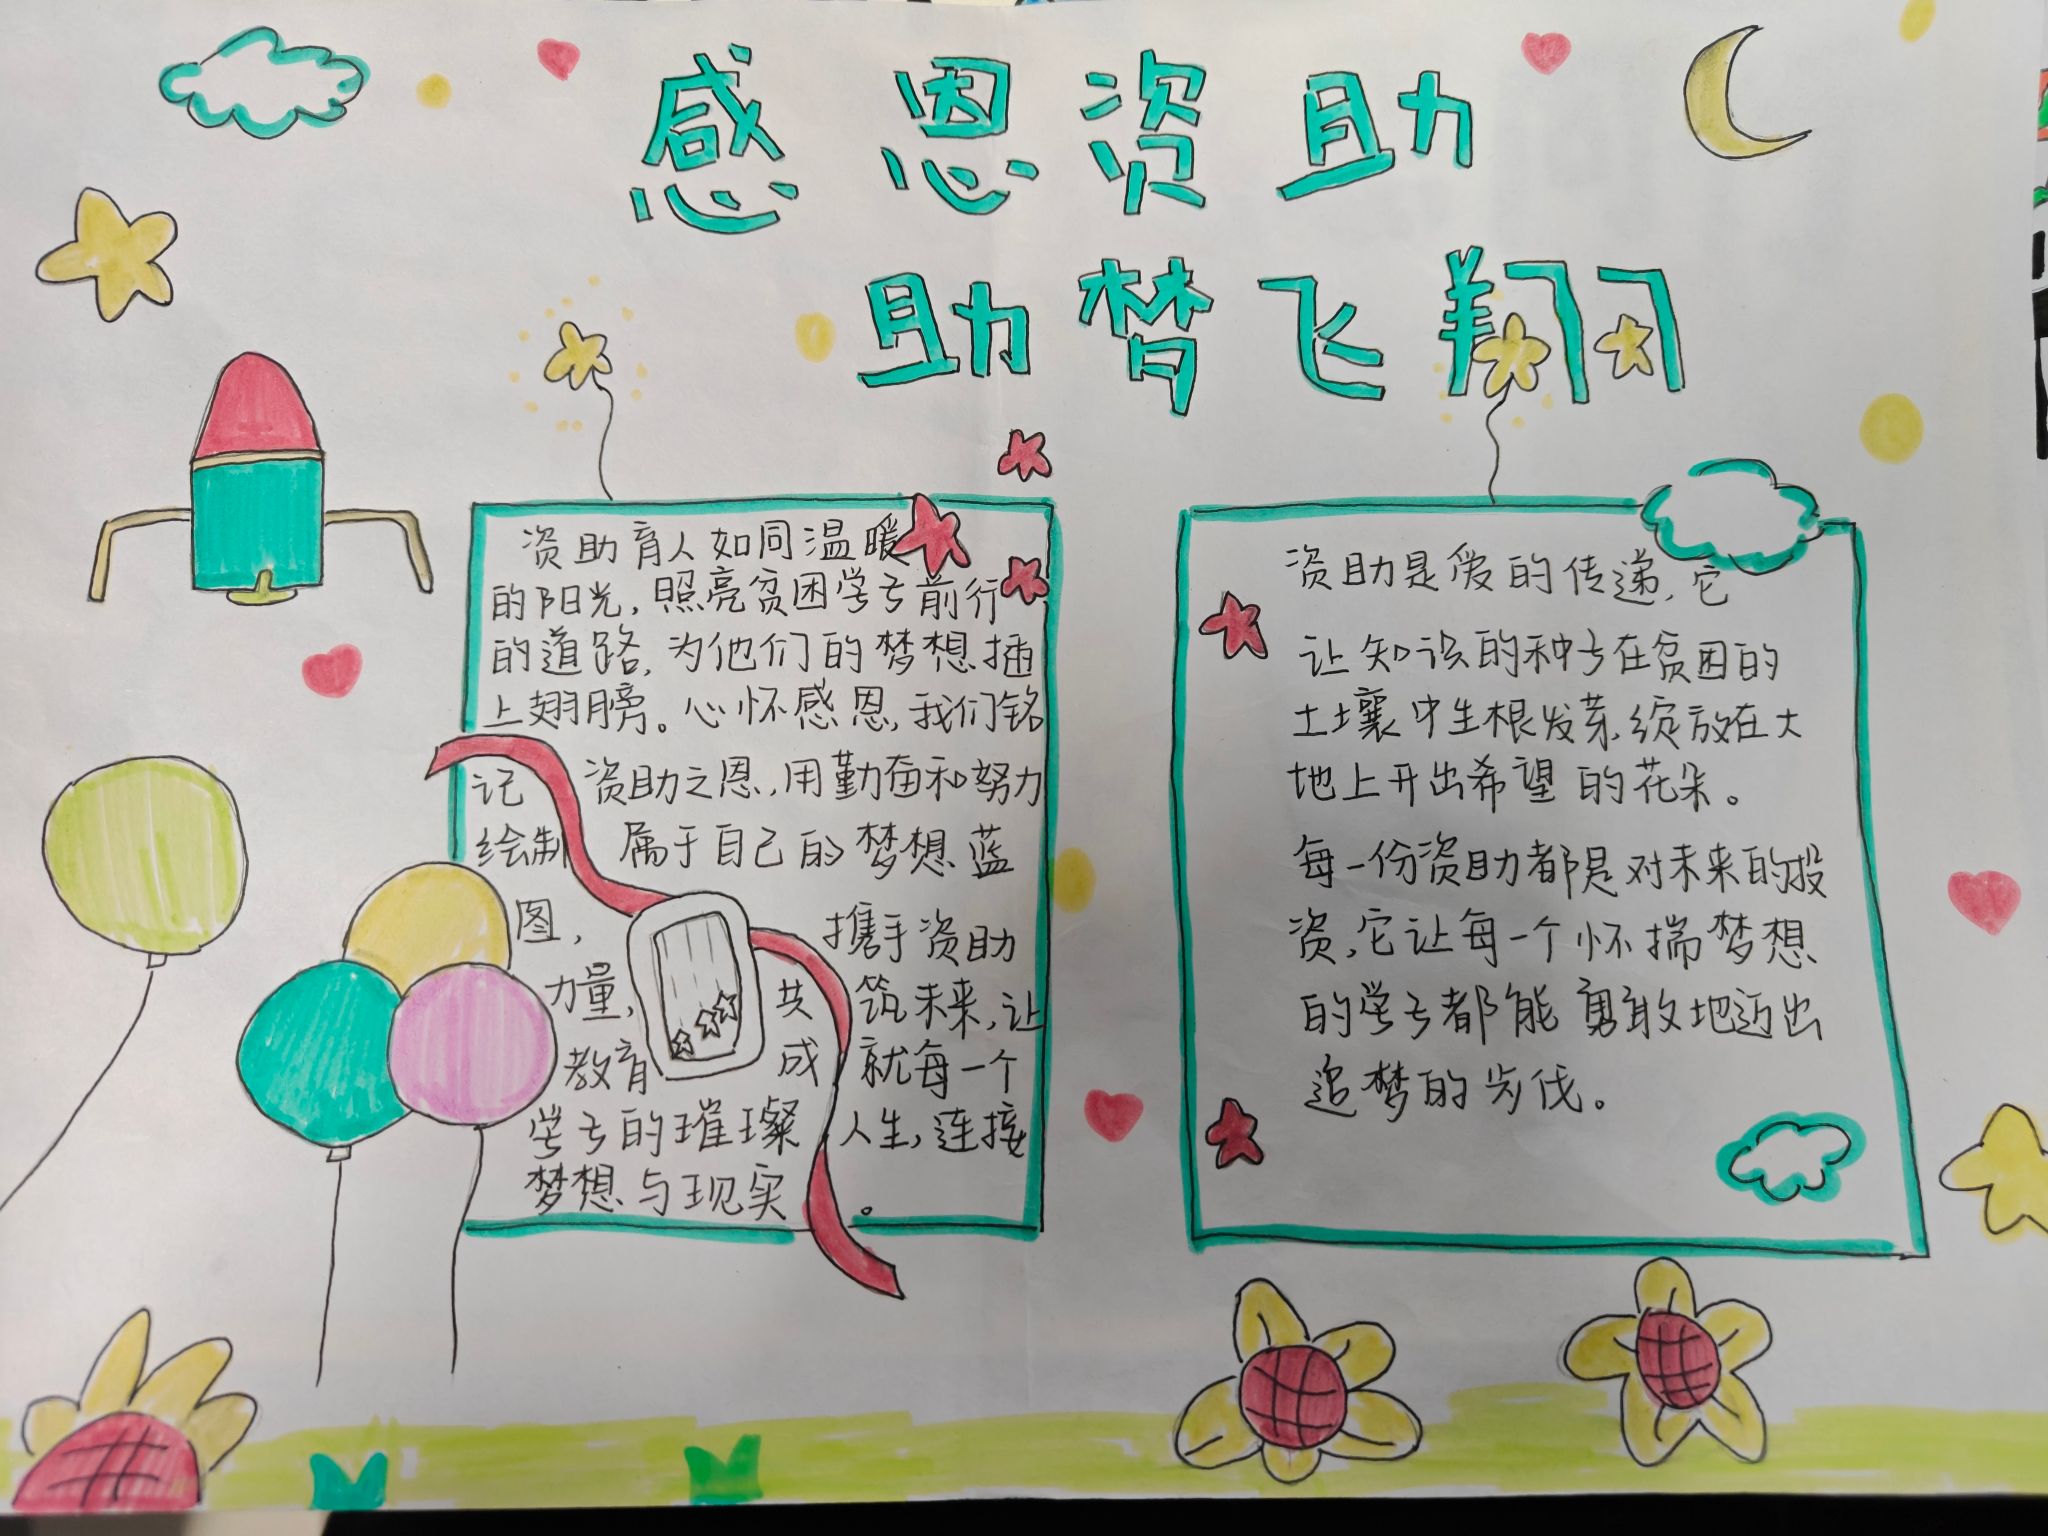 感恩资助
助梦飞翔
资助育人如同温暖
的阳光，照亮贫困学子前行
的道路，为他们的梦想插
上翅膀。心怀感恩，我们铭
记 资助之恩，用勤奋和努力
绘制 属于自己的梦想蓝
图， 携手资助
力量， 共 筑未来，让
教育 成 就每一个
学子的璀璨 人生，连接
梦想与现实 。
资助是爱的传递，它
让知识的种子在贫困的
土壤中生根发芽，绽放在大
地上开出希望的花朵。
每一份资助都是对未来的投
资，它让每一个怀揣梦想
的学子都能勇敢地迈出
追梦的步伐。